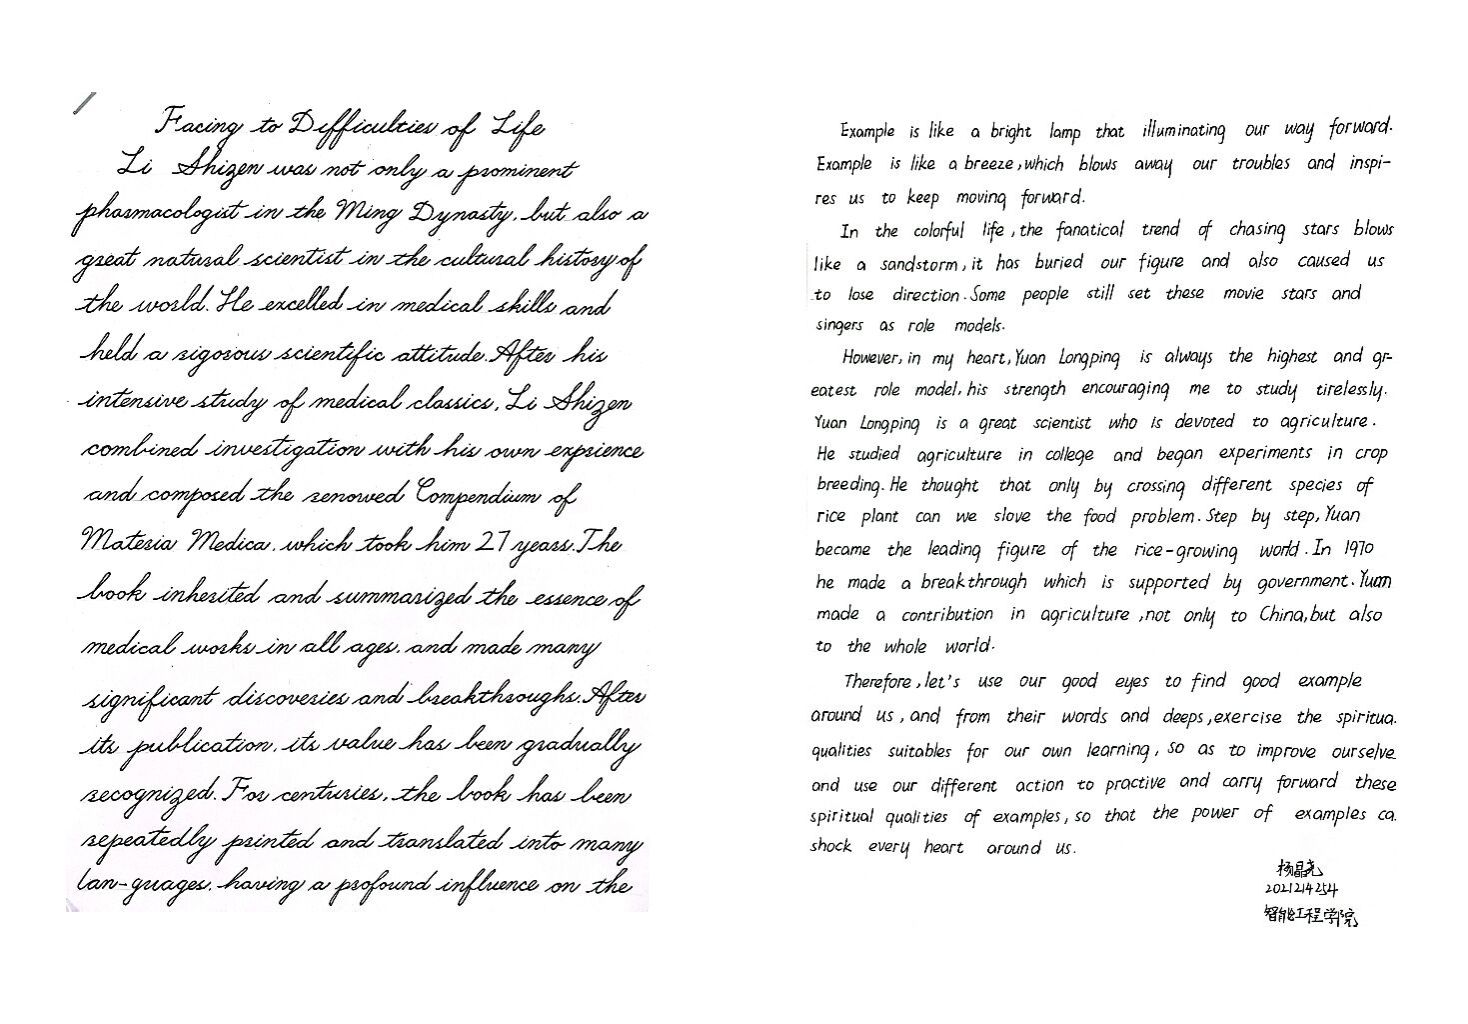 Facing to Difficulties of Life
Li Shizen was not only a prominent
pharmacologist in the Ming Dynasty, but also a
great natural scientist in the cultural history of
the world. He excelled in medical skills and
held a rigorous scientific attitude. After his
intensive study of medical classics, Li Shizen
combined investigation with his own exprience
and composed the renowed Compendium of
Materia Medica, which took him 27 years. The
book inherited and summarized the essence of
medical works in all ages, and made many
significant discoveries and breakthroughs. After
its publication, its value has been gradually
recognized. For centuries, the book has been
repeatedly printed and translated into many
lan-guages, having a profound influence on the
Example is like a bright lamp that illuminating our way forward.
Example is like a breeze, which blows away our troubles and inspi-
res us to keep moving forward.
In the colorful life, the fanatical trend of chasing stars blows
like a sandstorm, it has buried our figure and also caused us
to lose direction. Some people still set these movie stars and
singers as role models.
However, in my heart, Yuan Longping is always the highest and gr-
eatest role model, his strength encouraging me to study tirelessly.
Yuan Longping is a great scientist who is devoted to agriculture.
He studied agriculture in college and began experiments in crop
breeding. He thought that only by crossing different species of
rice plant can we slove the food problem. Step by step, Yuan
became the leading figure of the rice-growing world. In 1970
he made a breakthrough which is supported by government. Yuan
made a contribution in agriculture, not only to China, but also
to the whole world.
Therefore, let's use our good eyes to find good example
around us, and from their words and deeps, exercise the spiritua
qualities suitables for our own learning, so as to improve ourselve
and use our different action to practive and carry forward these
spiritual qualities of examples, so that the power of examples ca
shock every heart around us.
杨晶尧
2021214254
智能工程学院